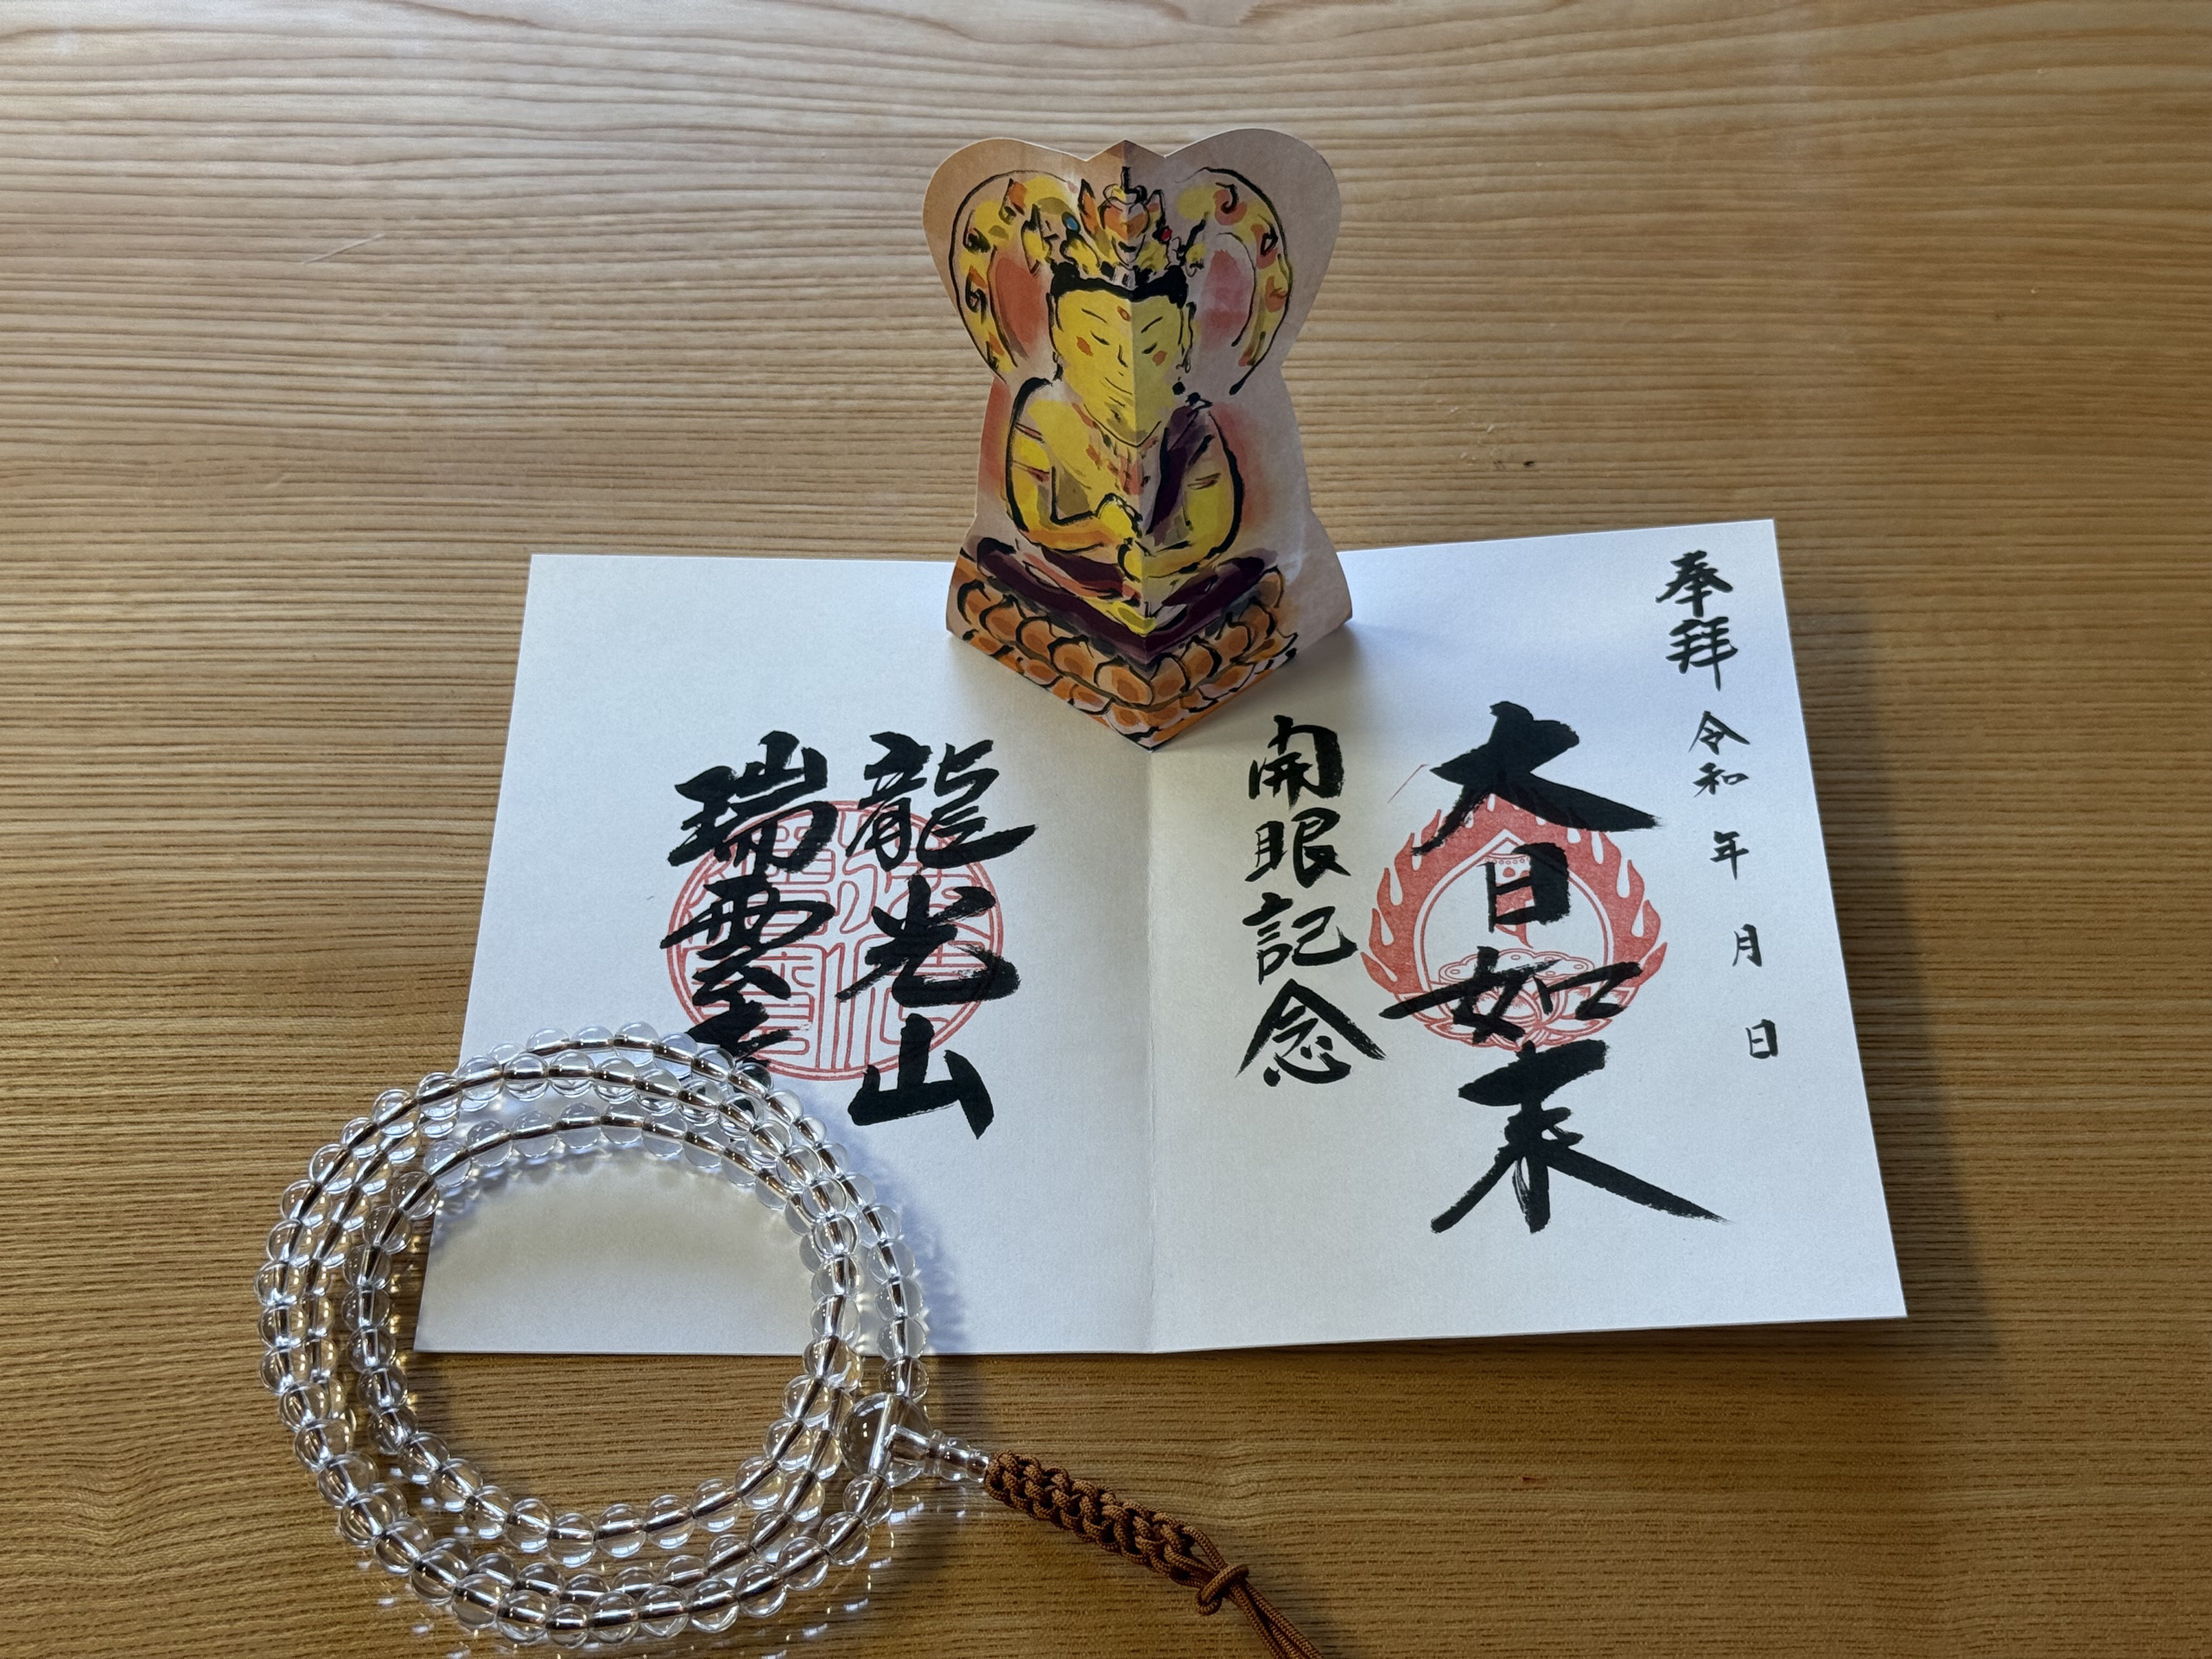 奉拝 令和 年 月 日
大日如来
開眼記念
龍光山
瑞雲